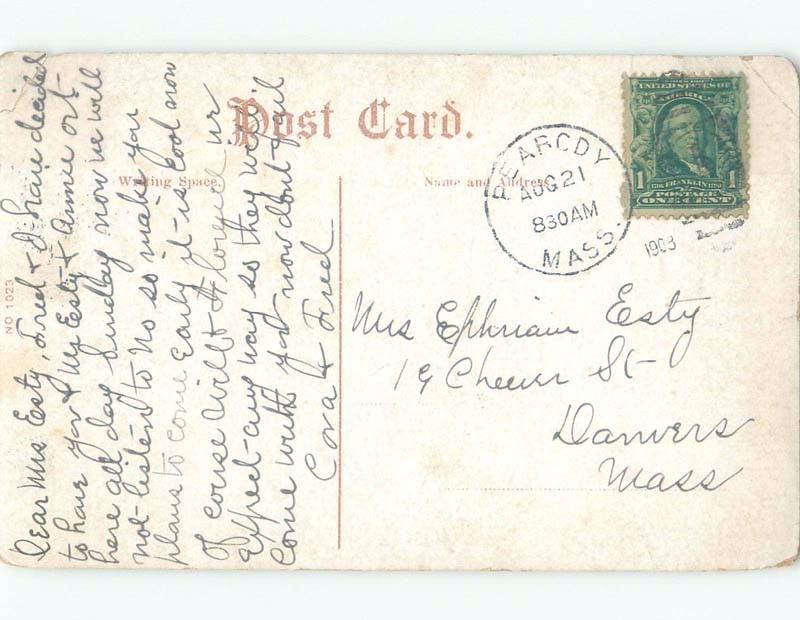 Post Card.
Writing Space.
Name and Address.
NO 1023
PEABODY
AUG 21
830 AM
MASS.
1908
UNITED STATES OF
AMERICA
1 FRANKLIN 1
POSTAGE
ONE CENT
Mrs Ephriam Esty
19 Cheever St-
Danvers
Mass
Dear Mrs Esty, Fred & I have decided
to have you & Mr Esty & Annie out-
here all day Sunday now we will
not- listen to No so make you
plans to come Early it is cool now
Of course Will & Florence ur
Expect-ang way so they will
Come with you now dont fail
Cora & Fred